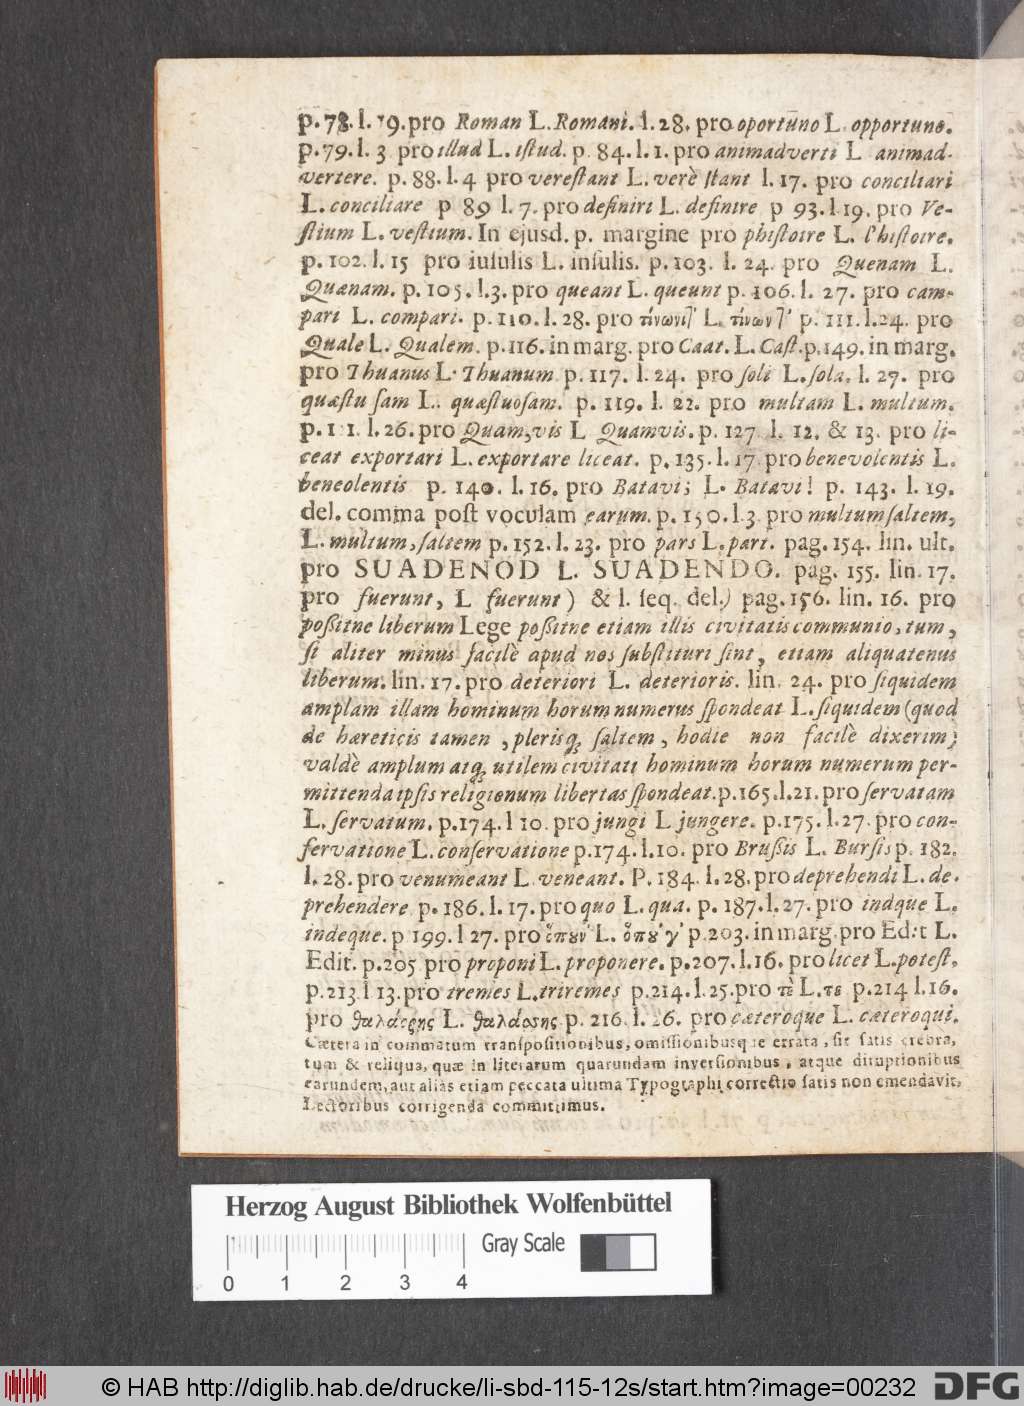 p. 78. l. 19. pro Roman L. Romani. l. 28. pro oportuno L. opportuno.
p. 79. l. 3 pro illud L. istud. p. 84. l. 1. pro animadverti L animad-
vertere. p. 88. l. 4 pro verestant L. verè stant l. 17. pro conciliari
L. conciliare p 89 l. 7. pro definiri L. definire p 93. l 19. pro Ve-
stium L. vestium. In ejusd. p. margine pro phistoire L. l'histoire.
p. 102. l. 15 pro iusulis L. insulis. p. 103. l. 24. pro Quenam L.
Quænam. p. 105. l. 3. pro queant L. queunt p. 106. l. 27. pro cam-
pari L. compari. p. 110. l. 28. pro L. p. 111. l. 24. pro
Quale L. Qualem. p. 116. in marg. pro Caat. L. Cast. p. 149. in marg.
pro Thuanus L. Thuanum p. 117. l. 24. pro soli L. sola. l. 27. pro
quæstu sam L. quæstuosam. p. 119. l. 22. pro multam L. multum.
l. 26. pro Quam, vis L Quamvis. p. 127 l. 12. & 13. pro li-
ceat exportari L. exportare liceat. p. 135. l. 17. pro benevolentis L.
beneolentis p. 140. l. 16. pro Batavi; L. Batavi! p. 143. l. 19.
del. comma post voculam earum. p. 150. l. 3. pro multum saltem,
L. multum, saltem p. 152. l. 23. pro pars L. pari. pag. 154. lin. ult.
pro SUADENOD L. SUADENDO. pag. 155. lin. 17.
pro fuerunt, L fuerunt) & l. seq. del.) pag. 156. lin. 16. pro
possitne liberum Lege possitne etiam illis civitatis communio, tum,
si aliter minus facilè apud nos substituri sint, etiam aliquatenus
liberum. lin. 17. pro deteriori L. deterioris. lin. 24. pro siquidem
amplam illam hominum horum numerus spondeat L. siquidem (quod
de hæreticis tamen, plerisq; saltem, hodie non facilè dixerim)
valdè amplum atq; utilem civitati hominum horum numerum per-
mittenda ipsis religionum libertas spondeat. p. 165. l. 21. pro servatam
L. servatum. p. 174. l 10. pro jungi L jungere. p. 175. l. 27. pro con-
fervatione L. conservatione p. 174. l. 10. pro Brussis L. Bursis p. 182.
l. 28. pro venumeant L veneant. P. 184. l. 28. pro deprehendi L. de-
prehendere p. 186. l. 17. pro quo L. qua. p. 187. l. 27. pro indque L.
indeque. p 199. l 27. pro L. p. 203. in marg. pro L.
Edit. p. 205 pro proponi L. proponere. p. 207. l. 16. pro licet L. potest.
p. 213 l 13. pro tremes L. triremes p. 214. l. 25. pro τὲ L. τε p. 214 l. 16.
pro L. p. 216. l. 26. pro cæteroque L. cæteroqui.
Cætera in commatum transpositionibus, omissionibusque errata, sit satis crebra,
tum & reliqua, quæ in literarum quarundam inversionibus, atque diruptionibus
earundem, aut aliàs etiam peccata ultima Typographi correctio satis non emendavit,
Lectoribus corrigenda committimus.
Herzog August Bibliothek Wolfenbüttel
Gray Scale
0 1 2 3 4
© HAB http://diglib.hab.de/drucke/li-sbd-115-12s/start.htm?image=00232 DFG